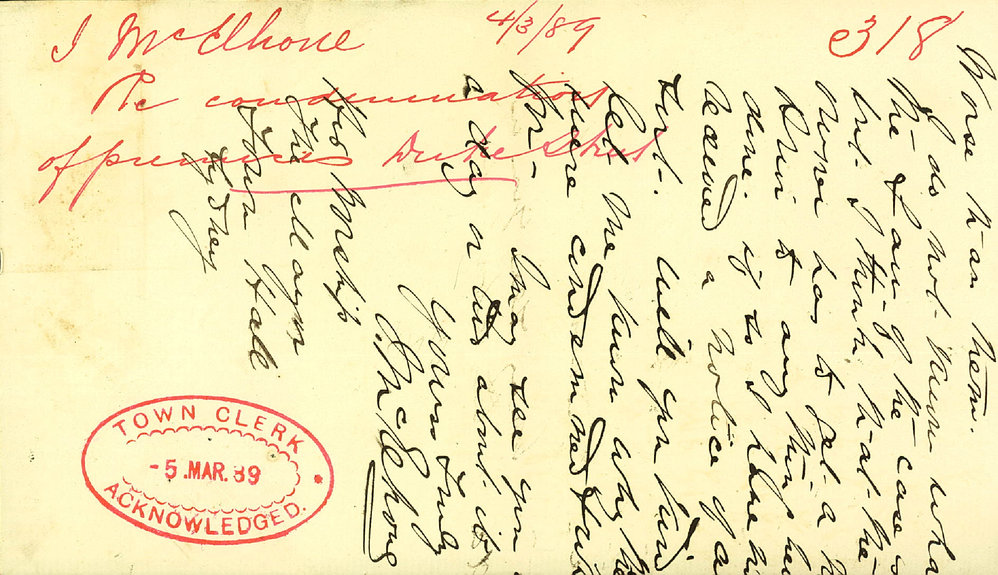 J McElhone 4/3/89 318
Re condemnation
of premises Duke Street
worse than
I do not know wha
the Law of the case is
but I think that the
owner has to get a n
him to any thin
done. if so I have n
received a notice of a
sort. will you kind
let me know why the
were condemned
for
I may see you
a day or two about it
Yours truly
J. McElhone
His Worship
The Mayor
Town Hall
Sydney
TOWN CLERK
-5.MAR.89
ACKNOWLEDGED.